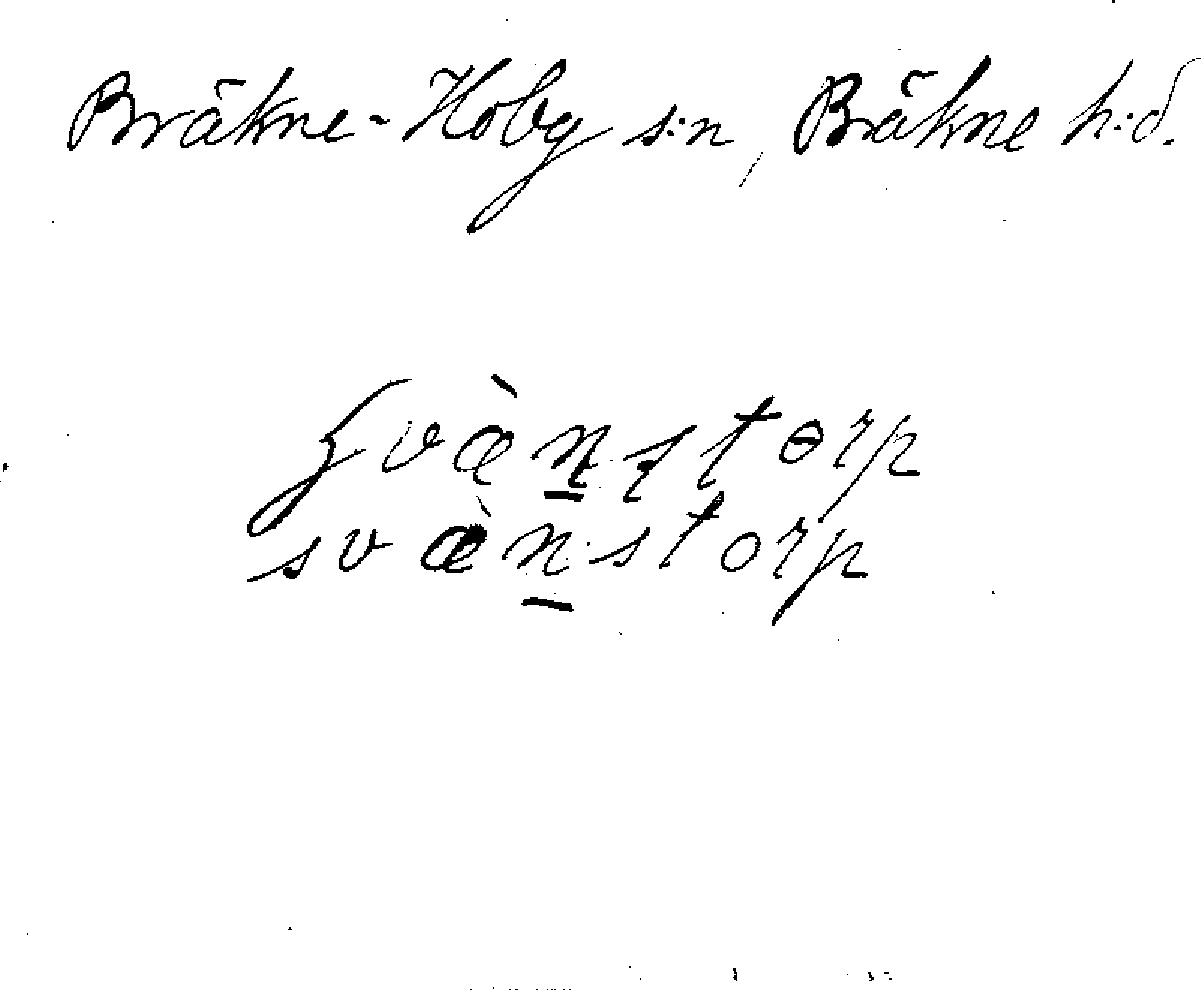 Bräkne-Hoby s:n, Bräkne h:d.
svæ̀n̠storp
svæ̀n̠storp